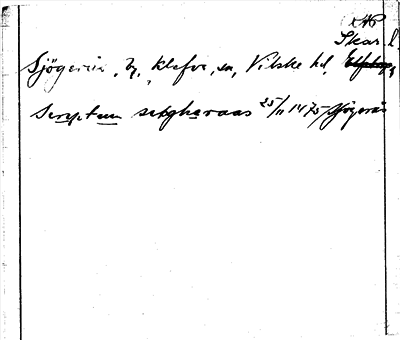 Skar. l.
Sjögerås, by, Klefva, sn, Vilske hd,
Scriptum sekgharaas 25/11 1475 Sjögerås